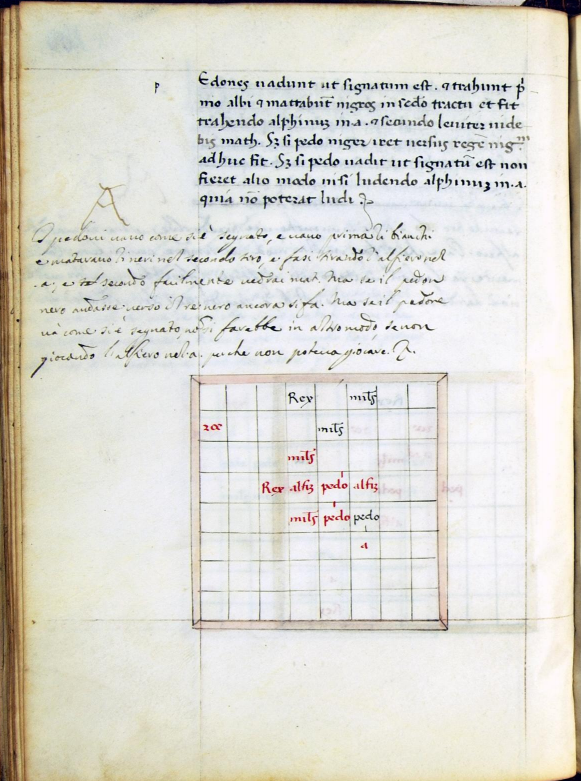 p
Edones uadunt ut signatum est . ⁊ trahunt p̄
mo albi ⁊ mattabūt nigros in sēdo tractu et fit
trahendo alphinuꝫ in .a. ⁊ secundo leuiter uide
bis math. Sꝫ si pedo niger iret uersus regē nig
adhuc fit. Sꝫ si pedo uadit ut signatū est non
fieret alio modo nisi ludendo alphinuꝫ in .a.
quia nō poterat ludi
A
I pedoni uano come si è segnato, e uano prima li bianchi
e mataranno i neri nel secondo tiro, e fasi tirando l'alfiero nel
.a., e nel secondo facilmente uedrai mat. Ma se il pedon
nero andasse uerso il re nero ancora si fa. Ma se il pedone
uà come si è segnato, nō si farebbe in altro modo, se non
giocando l'alfiero nel .a. perche non poteua giocare.
Rex milˢ
roc milˢ
milˢ
Rex alfiꝫ pedo alfiꝫ
milˢ pedo pedo
a